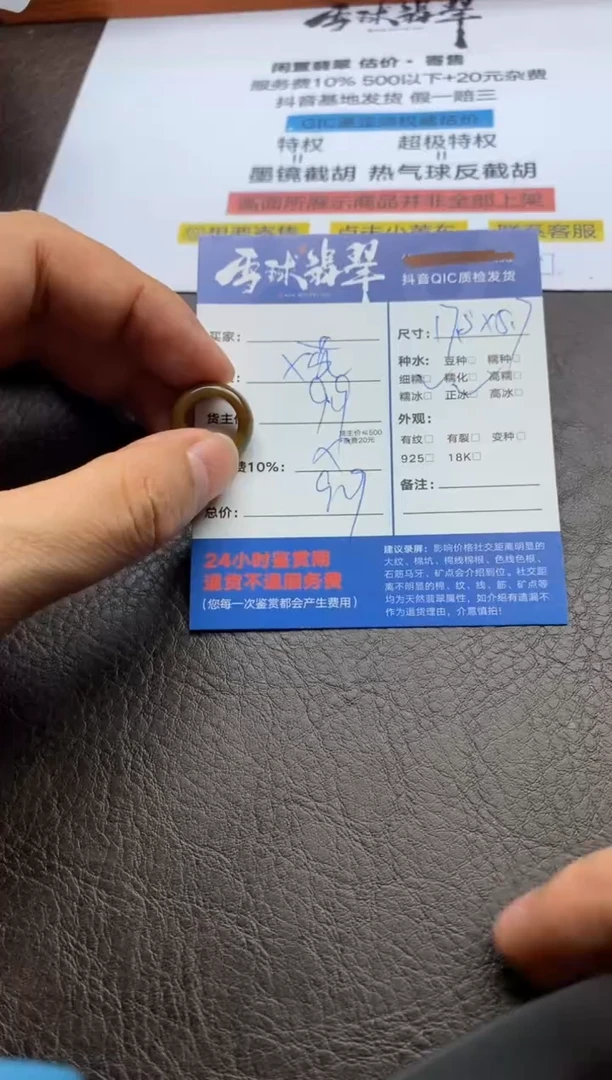 雪球翡翠
闲置翡翠 估价· 寄售
服务费10% 500以下+20元杂费
抖音基地发货 假一赔三
特权 超极特权
墨镜截胡 热气球反截胡
画面所展示商品并非全部上架
联系客服
雪球翡翠
抖音QIC质检发货
买家:
尺寸:
种水: 豆种□ 糯种□
细糯□ 糯化□ 高糯□
糯冰□ 正冰□ 高冰□
99
货主
外观:
有纹□ 有裂□ 变种□
925□ 18K□
费10%:
备注:
总价:
99
24小时鉴赏期
退货不退服务费
(您每一次鉴赏都会产生费用)
建议录屏: 影响价格社交距离明显的
大纹、棉坑、棉线棉根、色线色根、
石筋马牙、矿点会介绍到位。社交距
离不明显的棉、纹、线、筋、矿点等
均为天然翡翠属性,如介绍有遗漏不
作为退货理由,介意慎拍!